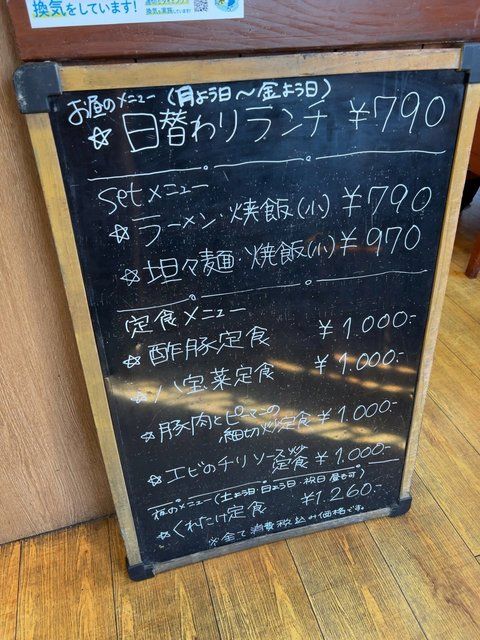 換気をしています!
お昼のメニュー (月よう日〜金よう日)
☆日替わりランチ ¥790
setメニュー
☆ラーメン・焼飯(小) ¥790
☆坦々麺・焼飯(小) ¥970
定食メニュー
☆酢豚定食 ¥1.000-
☆八宝菜定食 ¥1.000-
☆豚肉とピーマンの
細切り炒定食 ¥1.000-
☆エビのチリソース炒
定食 ¥1.000-
夜のメニュー(土よう日・日よう日・祝日昼も可)
☆くれたけ定食 ¥1.260-
※全て消費税込み価格です。